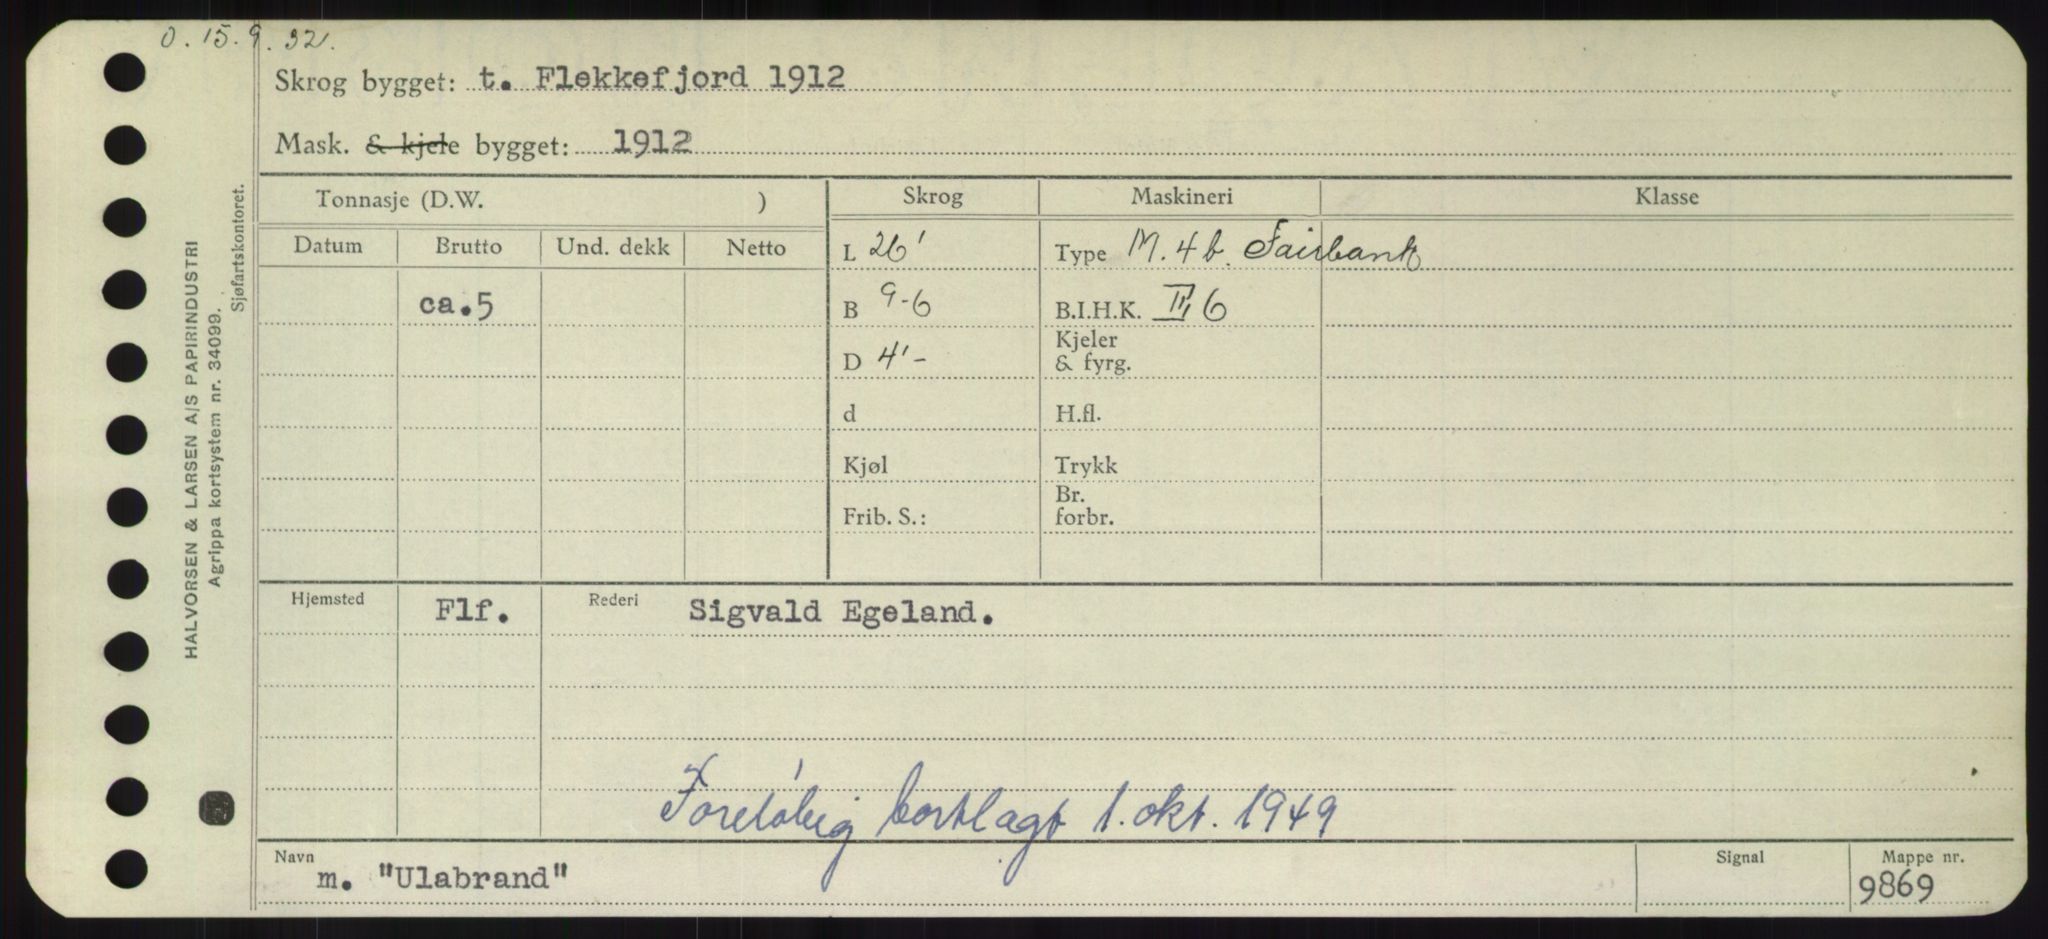 O. 15.9.32.
Skrog bygget: t. Flekkefjord 1912
Mask. & kjele bygget: 1912
Tonnasje (D.W. ) Skrog Maskineri Klasse
Datum Brutto Und. dekk Netto L 26' Type M. 4 b. Fairbank
ca.5 B 9-6 B.I.H.K. II, 6
D 4'- Kjeler
& fyrg.
d H.fl.
Kjøl Trykk
Br.
Frib. S.: forbr.
Hjemsted Flf. Rederi Sigvald Egeland.
Foreløbig bortlagt 1. okt. 1949
Navn Signal Mappe nr.
m. "Ulabrand" 9869
HALVORSEN & LARSEN A/S PAPIRINDUSTRI
Agrippa kortsystem nr. 34099.
Sjøfartskontoret.